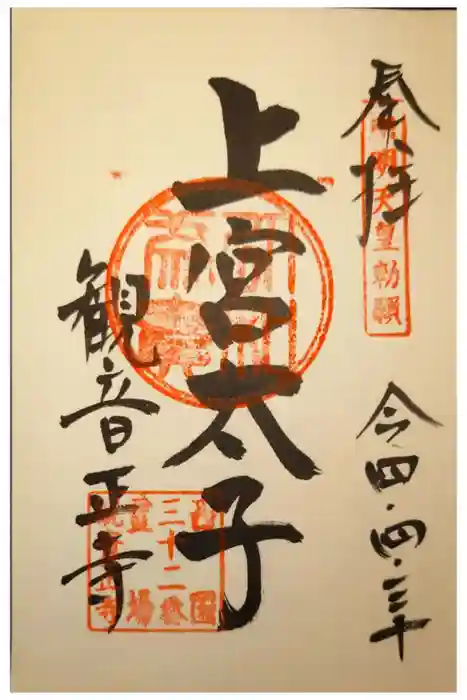 奉拝
用明天皇勅願
令四・四・三十
上宮太子
観音正寺
西國
三十二番
霊場
観音正寺